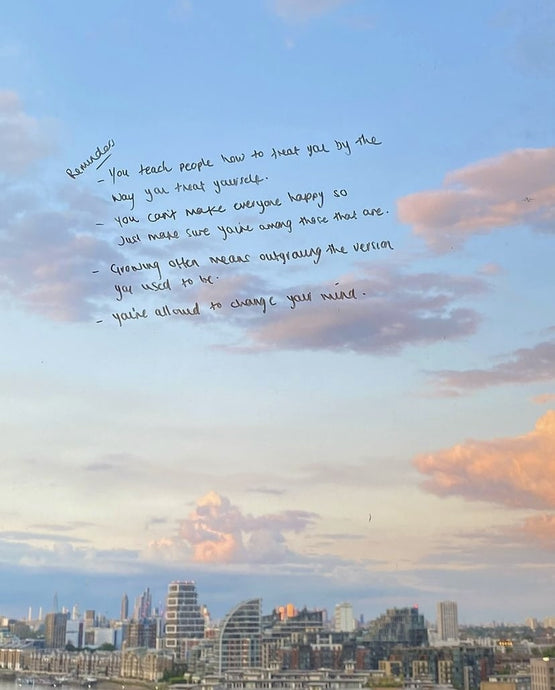 Reminders
- You teach people how to treat you by the
way you treat yourself.
- You can't make everyone happy so
just make sure you're among those that are.
- Growing often means outgrowing the version
you used to be.
- you're allowed to change your mind.